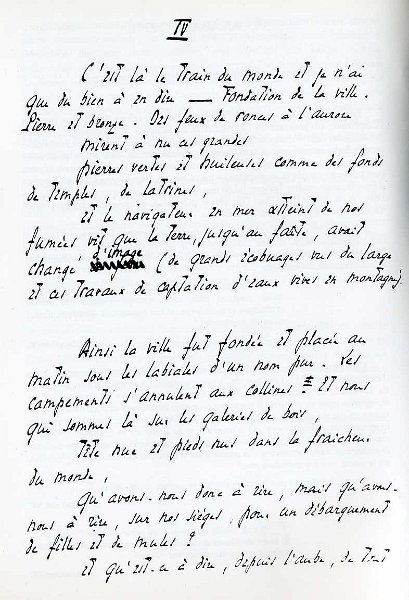 IV
C'est là le train du monde et je n'ai
que du bien à en dire — Fondation de la ville.
Pierre et bronze. Des feux de ronces à l'aurore
mirent à nu ces grandes
pierres vertes et huileuses comme des fonds
de temples, de latrines,
et le navigateur en mer atteint de nos
fumées vit que la terre, jusqu'au faîte, avait
changé d'image (de grands écobuages vus du large
et ces travaux de captation d'eaux vives en montagne).
Ainsi la ville fut fondée et placée au
matin sous les labiales d'un nom pur. Les
campements s'annulent aux collines ! Et nous
qui sommes là sur les galeries de bois,
tête nue et pieds nus dans la fraîcheur
du monde,
qu'avons-nous donc à rire, mais qu'avons-
nous à rire, sur nos sièges, pour un débarquement
de filles et de mules ?
et qu'est-ce à dire, depuis l'aube, de tout